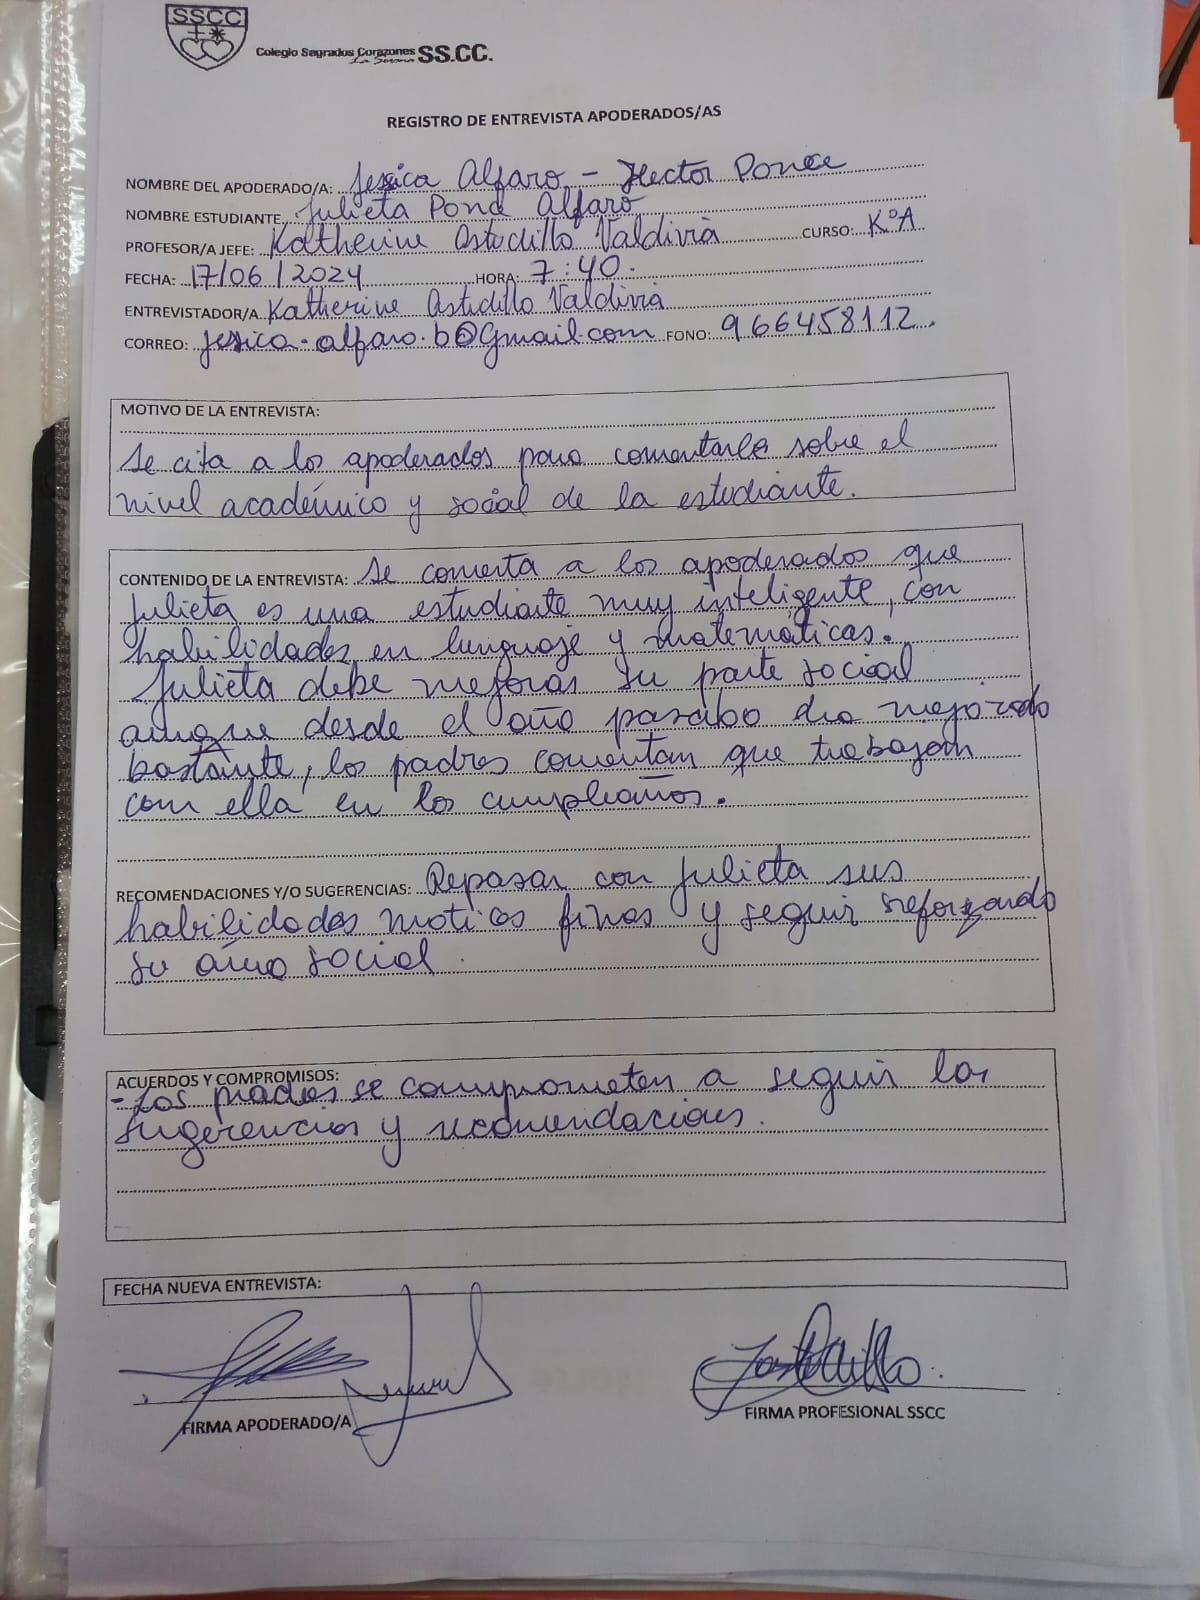 SSCC
Colegio Sagrados Corazones SS.CC.
La Serena
REGISTRO DE ENTREVISTA APODERADOS/AS
NOMBRE DEL APODERADO/A: Jessica Alfaro - Hector Ponce
NOMBRE ESTUDIANTE Julieta Ponce Alfaro
PROFESOR/A JEFE: Katherine Astudillo Valdivia CURSO: K°A
FECHA: 17/06/2024 HORA: 7:40.
ENTREVISTADOR/A Katherine Astudillo Valdivia
CORREO: jessica.alfaro.b@gmail.com FONO: 966458112.
MOTIVO DE LA ENTREVISTA:
Se cita a los apoderados para comentarle sobre el
nivel académico y social de la estudiante.
CONTENIDO DE LA ENTREVISTA: Se comenta a los apoderados que
Julieta es una estudiante muy inteligente, con
habilidades en lenguaje y matemáticas.
Julieta debe mejorar su parte social
aunque desde el año pasado ha mejorado
bastante, los padres comentan que trabajan
con ella en los cumpleaños.
RECOMENDACIONES Y/O SUGERENCIAS: Repasar con Julieta sus
habilidades motices finas y seguir reforzando
su área social.
ACUERDOS Y COMPROMISOS:
- Los padres se comprometen a seguir las
sugerencias y recomendaciones.
FECHA NUEVA ENTREVISTA:
FIRMA APODERADO/A
FIRMA PROFESIONAL SSCC